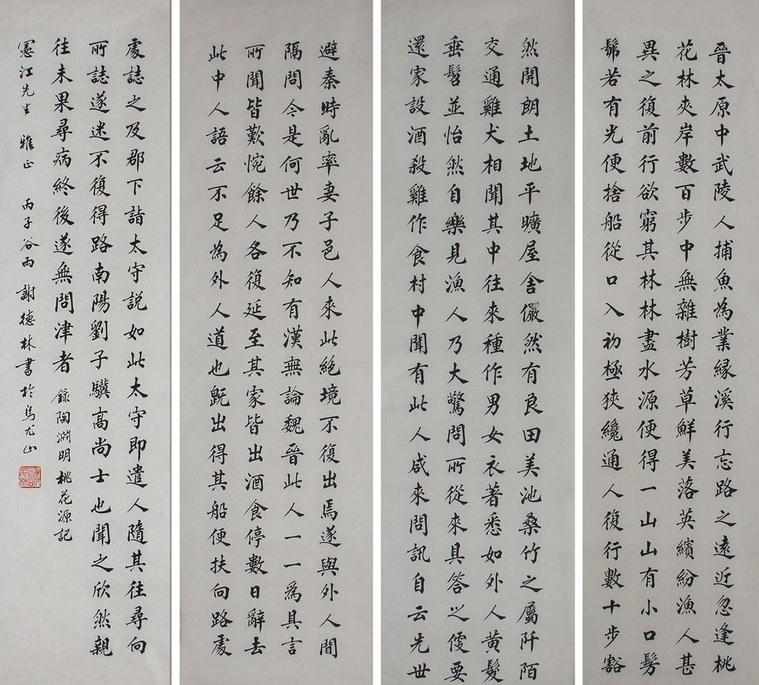 晉太原中武陵人捕魚為業緣溪行忘路之遠近忽逢桃
花林夾岸數百步中無雜樹芳草鮮美落英繽紛漁人甚
異之復前行欲窮其林林盡水源便得一山山有小口髣
髴若有光便捨船從口入初極狹纔通人復行數十步豁
然開朗土地平曠屋舍儼然有良田美池桑竹之屬阡陌
交通雞犬相聞其中往來種作男女衣著悉如外人黃髮
垂髫並怡然自樂見漁人乃大驚問所從來具答之便要
還家設酒殺雞作食村中聞有此人咸來問訊自云先世
避秦時亂率妻子邑人來此絕境不復出焉遂與外人間
隔問今是何世乃不知有漢無論魏晉此人一一為具言
所聞皆歎惋餘人各復延至其家皆出酒食停數日辭去
此中人語云不足為外人道也既出得其船便扶向路處
處誌之及郡下詣太守說如此太守即遣人隨其往尋向
所誌遂迷不復得路南陽劉子驥高尚士也聞之欣然親
往未果尋病終後遂無問津者 錄陶淵明桃花源記
憲江先生 雅正 丙子谷雨 謝德林書於烏尤山